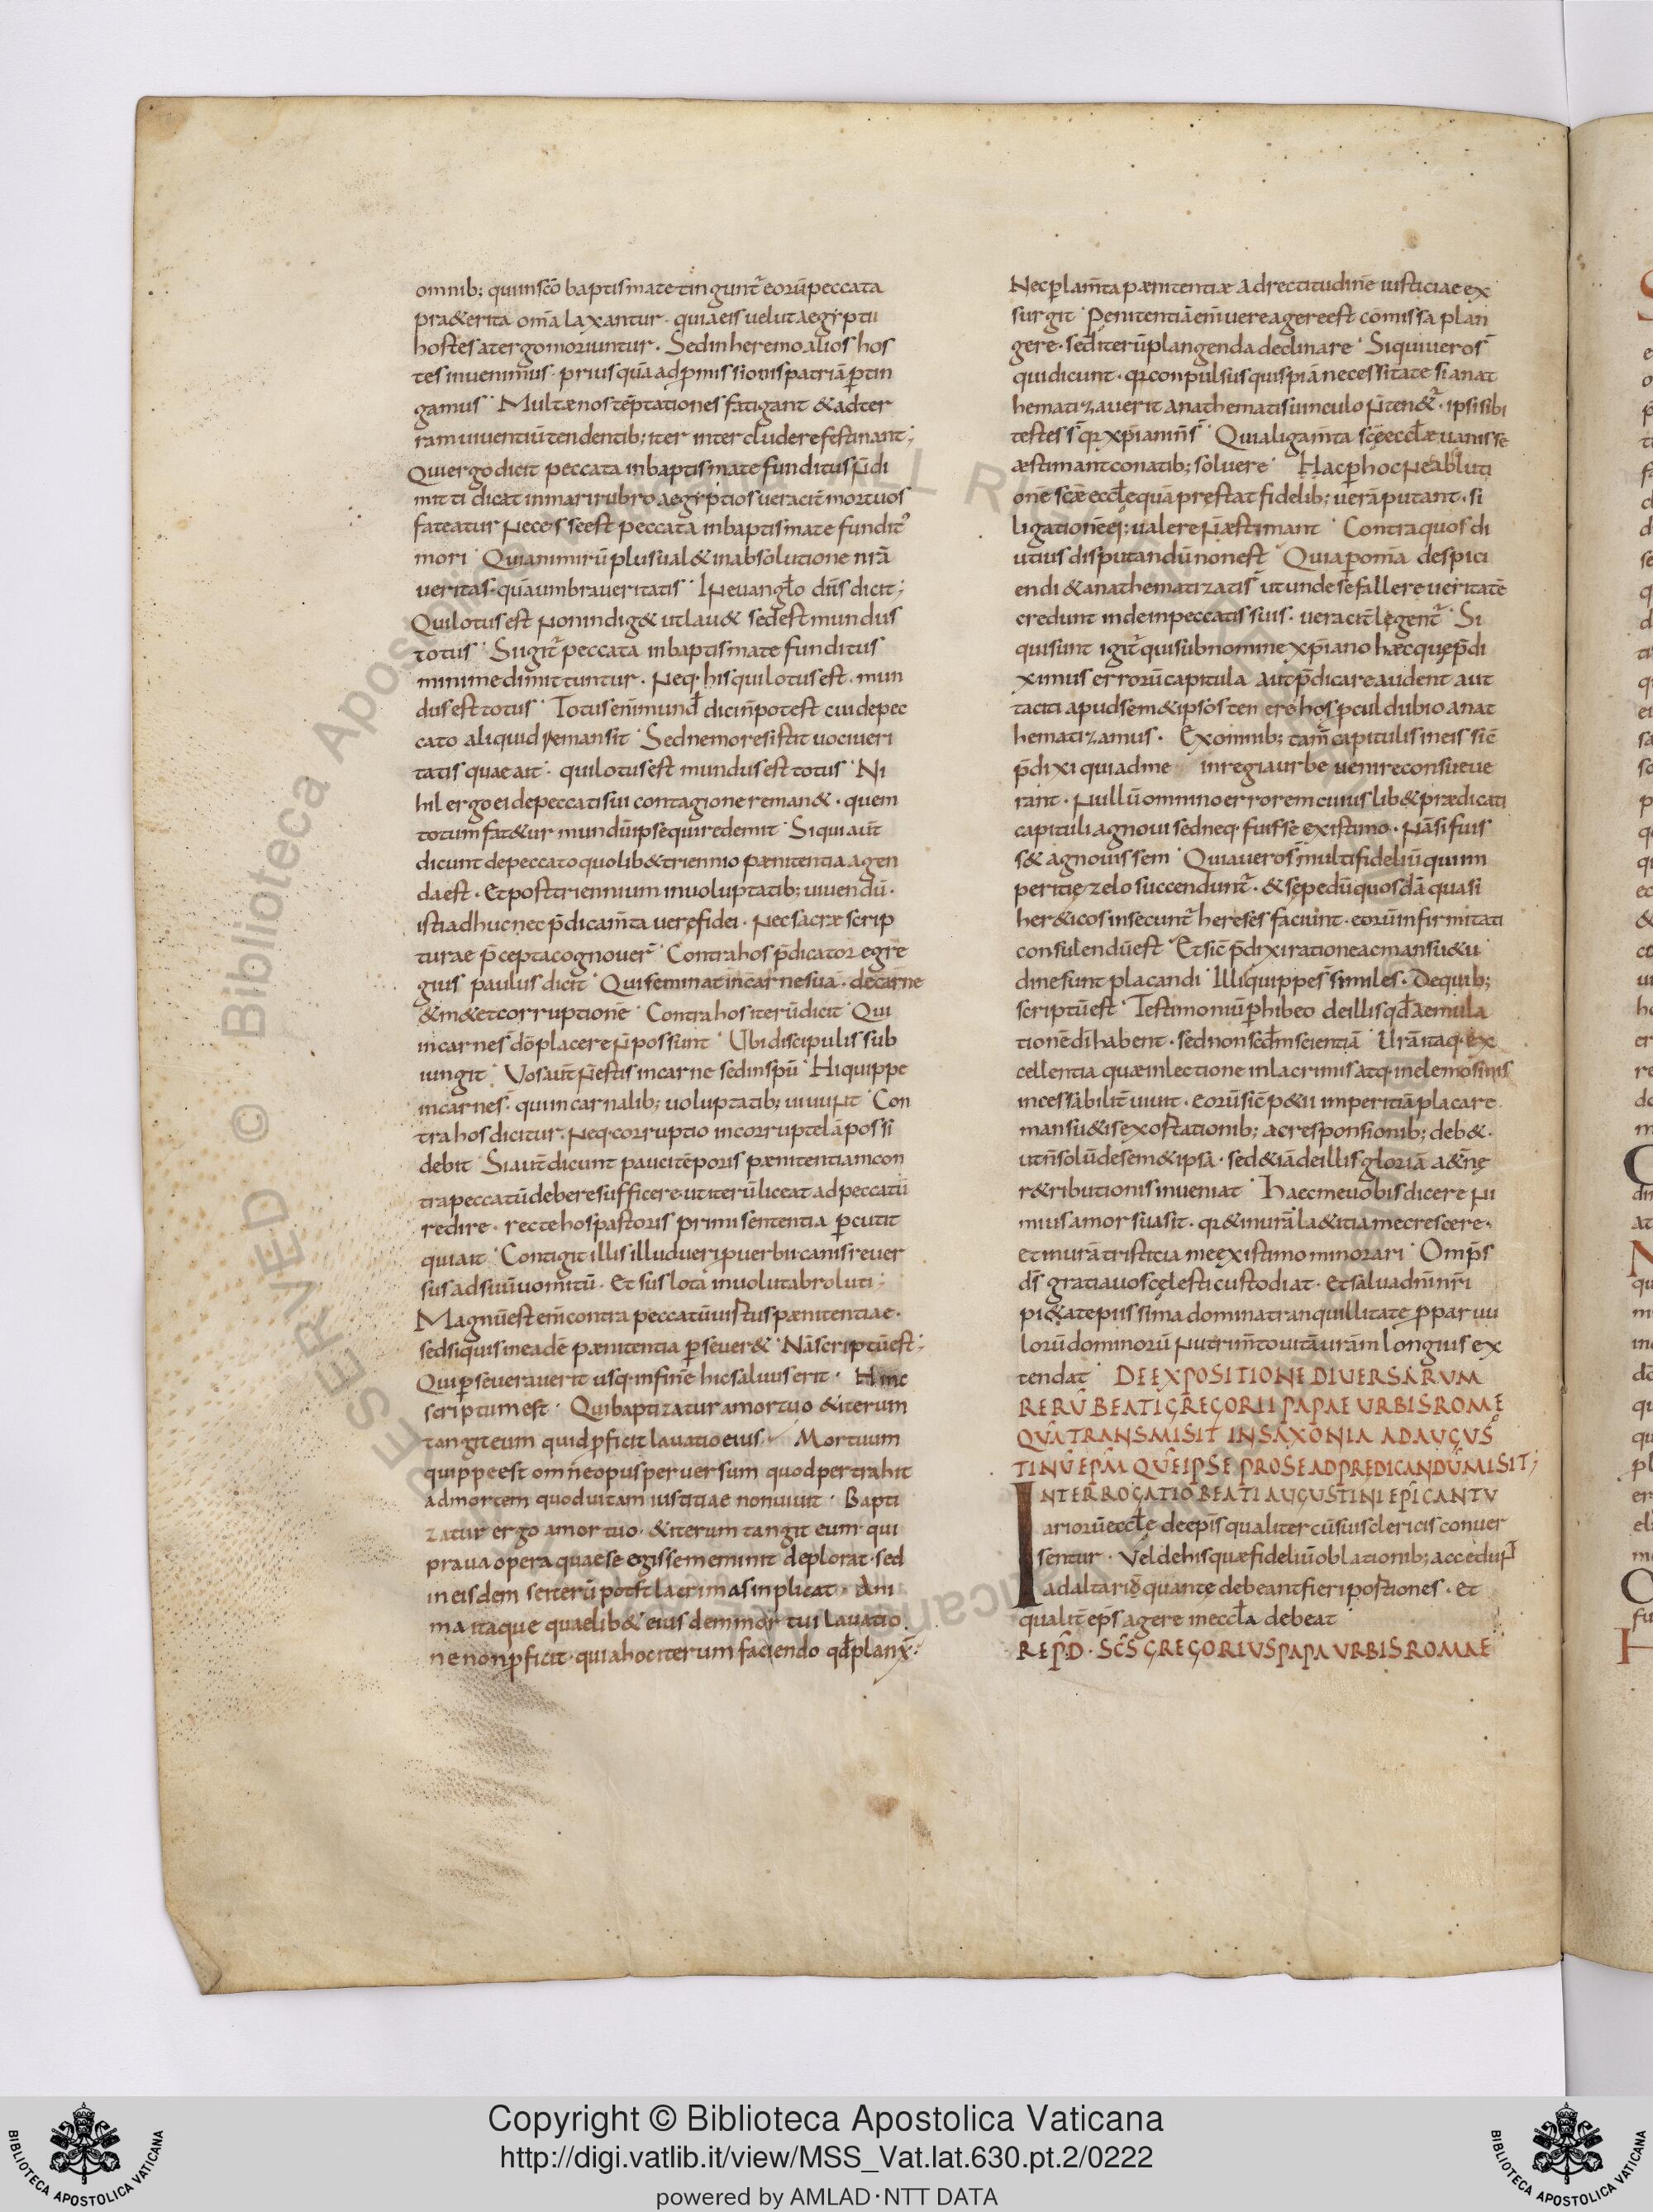 omnib; quiinscō baptismate tinguntr̄ eorū peccata
pra&erita om̄a laxantur · quia eis uelut aegyptii
hostes a tergo moriuntur · Sed in heremo alios hos
tes inuenimus · prius quā ad ꝓmissionis patriā ꝑtin
gamus · Multæ nos tēptationes fatigant & ad ter
ram uiuentiū tendentib; iter intercludere festinant;
Qui ergo dicit peccata in baptismate funditus n̄ di
mitti dicat in mari rubro aegyptios ueracit̄ mortuos
fateatur necesse est peccata in baptismate fundit'
mori · Quia nimirū plus ual& in absolutione nr̄ā
ueritas · quā umbra ueritatis · In euangl̄o dn̄s dicit;
Qui lotus est non indig& ut lau& sed est mundus
totus · Si igitr̄ peccata in baptismate funditus
minime dimittuntur · neq· his qui lotus est · mun
dus est totus · Totus enī mund' dici n̄ potest cui de pec
cato aliquid remansit · Sed nemo resistit uoci ueri
tatis quae ait · qui lotus est mundus est totus · Ni
hil ergo ei de peccati sui contagione reman& · quem
totum fat&ur mundū ipse qui redemit · Si qui aūt
dicunt de peccato quolib& triennio pænitentia agen
da est · Et post triennium in uoluptatib; uiuendū ·
isti adhuc nec p̄dicam̄ta uere fidei · Nec sacræ scrip
turae p̄cepta cognouer̄ · Contra hos p̄dicator egre
gius paulus dicit · Qui seminat in carne sua · de carne
& m&et corruptionē · Contra hos iterū dicit · Qui
in carne s̄ dō placere n̄ possunt · Ubi discipulis sub
iungit · Vos aūt n̄ estis in carne sed in spū · Hi quippe
in carne s̄ · qui in carnalib; uoluptatib; uiuunt · Con
tra hos dicitur · Neq· corruptio incorruptelā possi
debit · Si aūt dicunt pauci tēporis pænitentiam con
tra peccatū debere sufficere · ut iterū liceat ad peccatū
redire · recte hos pastoris primi sententia ꝑcutit
qui ait · Contigit illis illud ueri ꝓuerbii · canis reuer
sus ad suū uomitū · Et sus lota in uolutabro luti ·
Magnū est enī contra peccatū uirtus pænitentiae ·
sed si quis in eadē pænitentia ꝑseuer& · Nā scriptū est;
Qui ꝑseuerauerit usq· in finē hic saluus erit · Hinc
scriptum est · Qui baptizatur a mortuo & iterum
tangit eum quid ꝓficit lauatio eius · Mortuum
quippe est omne opus peruersum quod pertrahit
ad mortem quod uitam iustitiae non uiuit · Bapti
zatur ergo a mortuo · & iterum tangit eum · qui
praua opera quae se egisse meminit deplorat · sed
in eisdem se iterū post lacrimas inplicat · Ani
ma itaque quaelib& eius dem mortui lauatio
ne non ꝓficit · quia hoc iterum faciendo qd̄ planx̄ ·
Nec ꝑ lam̄ta pænitentiæ ad rectitudinē iusticiae ex
surgit · Penitentiā enī uere agere est cōmissa plan
gere · sed iterū plangenda declinare · Si qui uero s̄
qui dicunt · qr̄ conpulsus quispiā necessitate si anat
hematizauerit anathematis uinculo n̄ ten&r̄ · ipsi sibi
testes s̄ qr̄ xp̄iani n̄ s̄ · Quia ligam̄ta sc̄ę eccl̄æ uanis se
æstimant conatib; soluere · Hac ꝑ hoc ne abluti
onē scǣ eccl̄e quā prestat fidelib; uerā putant · si
ligationē ei; ualere n̄ æstimant · Contra quos di
utius disputandū non est · Quia ꝑ om̄a despici
endi & anathematizati s̄ · ut unde se fallere ueritatē
credunt inde in peccatis suis · ueracit̄ legentr̄ · Si
qui sunt igitr̄ qui sub nomine xp̄iano hæc quę p̄di
ximus errorū capitula aut p̄dicare audent aut
taciti apud sem&ipsos tenere hos ꝓcul dubio anat
hematizamus · Ex omnib; tam̄ capitulis in eis sic̄
p̄dixi qui ad me in regia urbe uenire consueue
rant · Nullū omnino errorem cuiuslib& prædicati
capituli agnoui sed neq· fuisse existimo · Nā si fuis
s& agnouissem · Quia uero s̄ multi fideliū qui im
peritię zelo succenduntr̄ · & sępe dū quosdā quasi
her&icos insecuntr̄ hereses faciunt · eorū infirmitati
consulendū est · Et sic̄ p̄dixi ratione ac mansu&u
dine sunt placandi · Illi quippe s̄ similes · De quib;
scriptū est · Testimoniū ꝑhibeo de illis qd̄ aemula
tionē dī habent · sed non sed̄m scientiā · Ur̄ā itaq· ex
cellentia quæ in lectione in lacrimis atq· in elemosinis
incessabilit̄ uiuit · eorū sic̄ p&ii imperitiā placare
mansu&is exortationib; ac responsionib; deb& ·
ut n̄ solū de sem&ipsā · sed & iā de illis gloriā a&n̄ę
r&ributionis inueniat · Haec me uobis dicere ni
mius amor suasit · qr̄ & in ur̄ā la&itia me crescere ·
et in ur̄ā tristicia me existimo minorari · Omp̄s
ds̄ gratia uos cęlesti custodiat · et salua dn̄i nr̄i
pi&ate piissima domina tranquillitate ꝓ paruu
lorū dominorū nutrim̄to uitā ur̄am longius ex
tendat · DE EXPOSITIONE DIVERSARVM
RERŪ BEATI GREGORII PAPAE VRBIS ROMĘ
QUĀ TRANSMISIT IN SAXONIA AD AUGUS
TINŪ EPM̄ QUĒ IPSE PRO SE AD PREDICANDŪ MISIT;
INTERROGATIO BEATI AUGUSTINI EPĪ CANTV
ariorū eccl̄ę de ep̄is qualiter cū suis clericis conuer
sentur · Vel de his quæ fideliū oblationib; accedunt
ad altariō quante debeant fieri portiones · et
qualit̄ ep̄s agere in eccl̄a debeat
REPD̄ · SC̄S GREGORIVS PAPA VRBIS ROMAE
Copyright © Biblioteca Apostolica Vaticana
http://digi.vatlib.it/view/MSS_Vat.lat.630.pt.2/0222
powered by AMLAD·NTT DATA
BIBLIOTECA APOSTOLICA VATICANA
BIBLIOTECA APOSTOLICA VATICANA